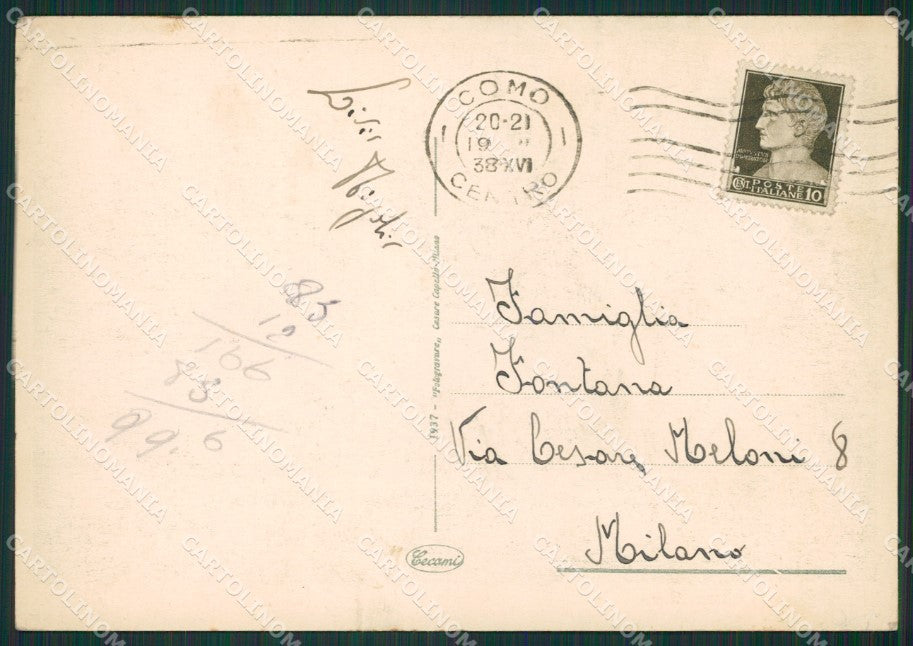 COMO
20-21
19 II
38 XVI
CENTRO
POSTE
CENT. ITALIANE 10
85
12
106
88
99.6
1937 - "Fotogravure" Cesare Capello-Milano
Cecami
Famiglia
Fontana
Via Cesare Meloni 8
Milano
CARTOLINOMANIA